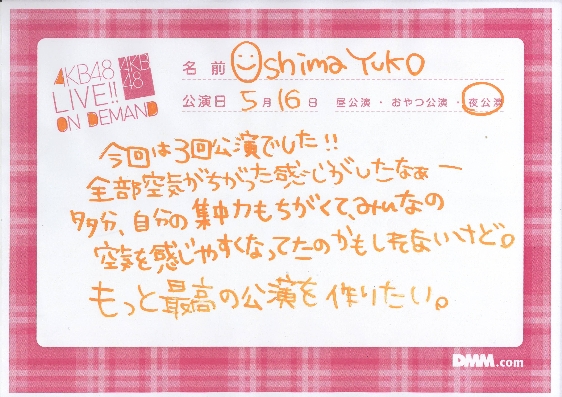 AKB48
LIVE!!
ON DEMAND
AKB
48
名前 Oshima Yuko
公演日 5月16日 昼公演・おやつ公演・夜公演
今回は3回公演でした!!
全部空気がちがった感じがしたなぁー
多分、自分の集中力もちがくて、みんなの
空気を感じやすくなってたのかもしれないけど。
もっと最高の公演を作りたい。
DMM.com